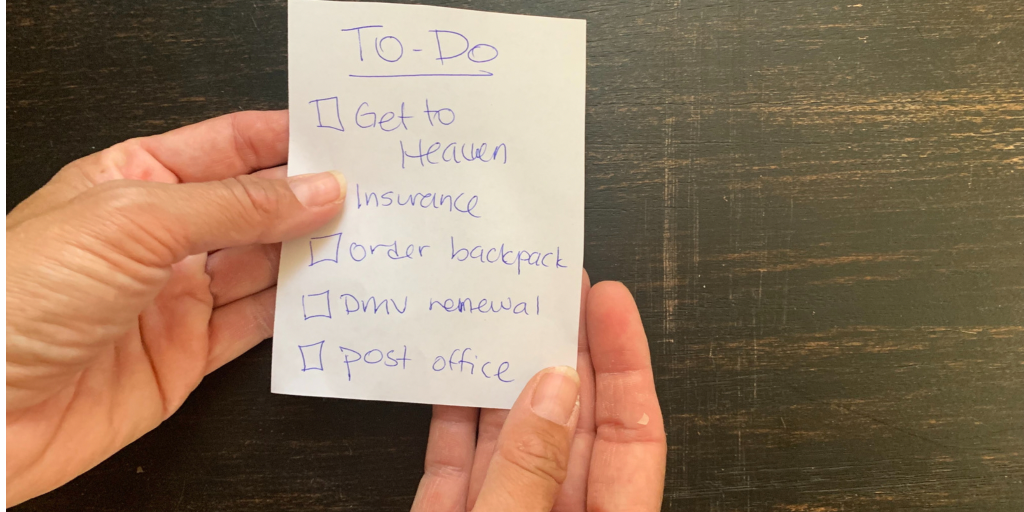 TO-DO
Get to
Heaven
Insurance
order backpack
DMV renewal
post office